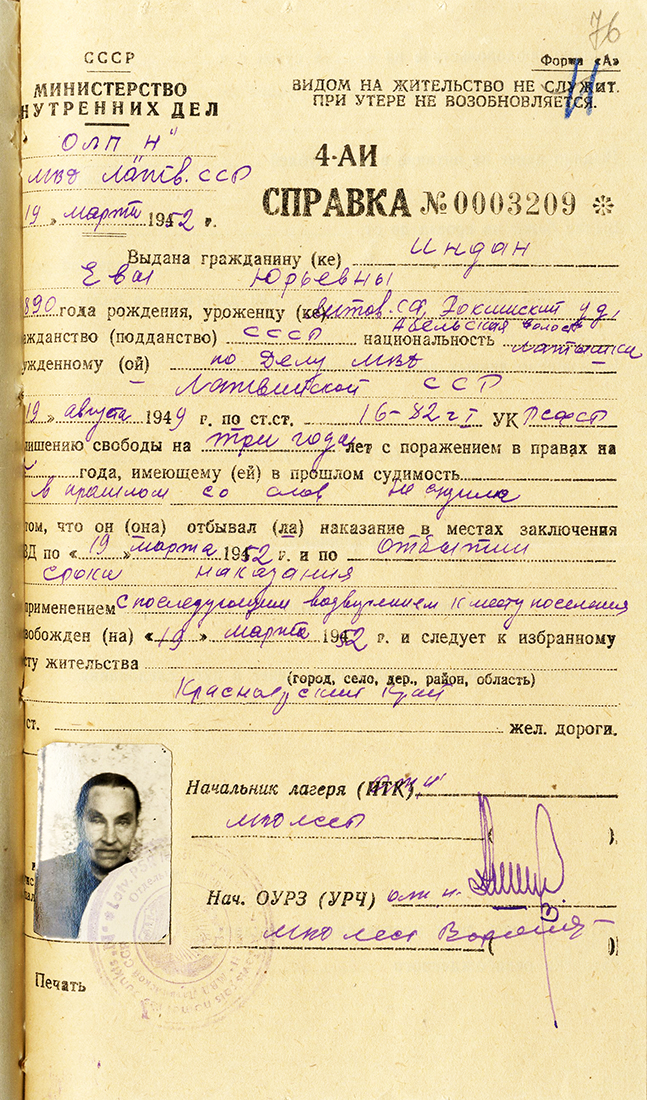 76
СССР
Форма «А»
МИНИСТЕРСТВО
НУТРЕННИХ ДЕЛ
ВИДОМ НА ЖИТЕЛЬСТВО НЕ СЛУЖИТ.
ПРИ УТЕРЕ НЕ ВОЗОБНОВЛЯЕТСЯ.
"ОЛП Н"
МВД Латв. ССР
4-АИ
СПРАВКА № 0003209 *
19 » марта 1952 г.
Выдана гражданину (ке) Индан
Евы Юрьевны
890 года рождения, уроженцу (ке)
Абельская волость
ажданство (подданство) СССР национальность латышка
ужденному (ой) по Делу МВД
Латвийской ССР
19 » августа 1949 г. по ст.ст. 16-82 ч I УК РСФСР
лишению свободы на три года лет с поражением в правах на
года, имеющему (ей) в прошлом судимость
в прошлом со слов не судима
том, что он (она) отбывал (ла) наказание в местах заключения
ВД по « 19 » марта 1952 г. и по отбытии
срока наказания
применением с последующим водворением к месту поселения
вобожден (на) « 19 » марта 1952 г. и следует к избранному
ту жительства
(город, село, дер., район, область)
Красноярский край
ст. жел. дороги.
Начальник лагеря (ИТК)
Нач. ОУРЗ (УРЧ)
Печать